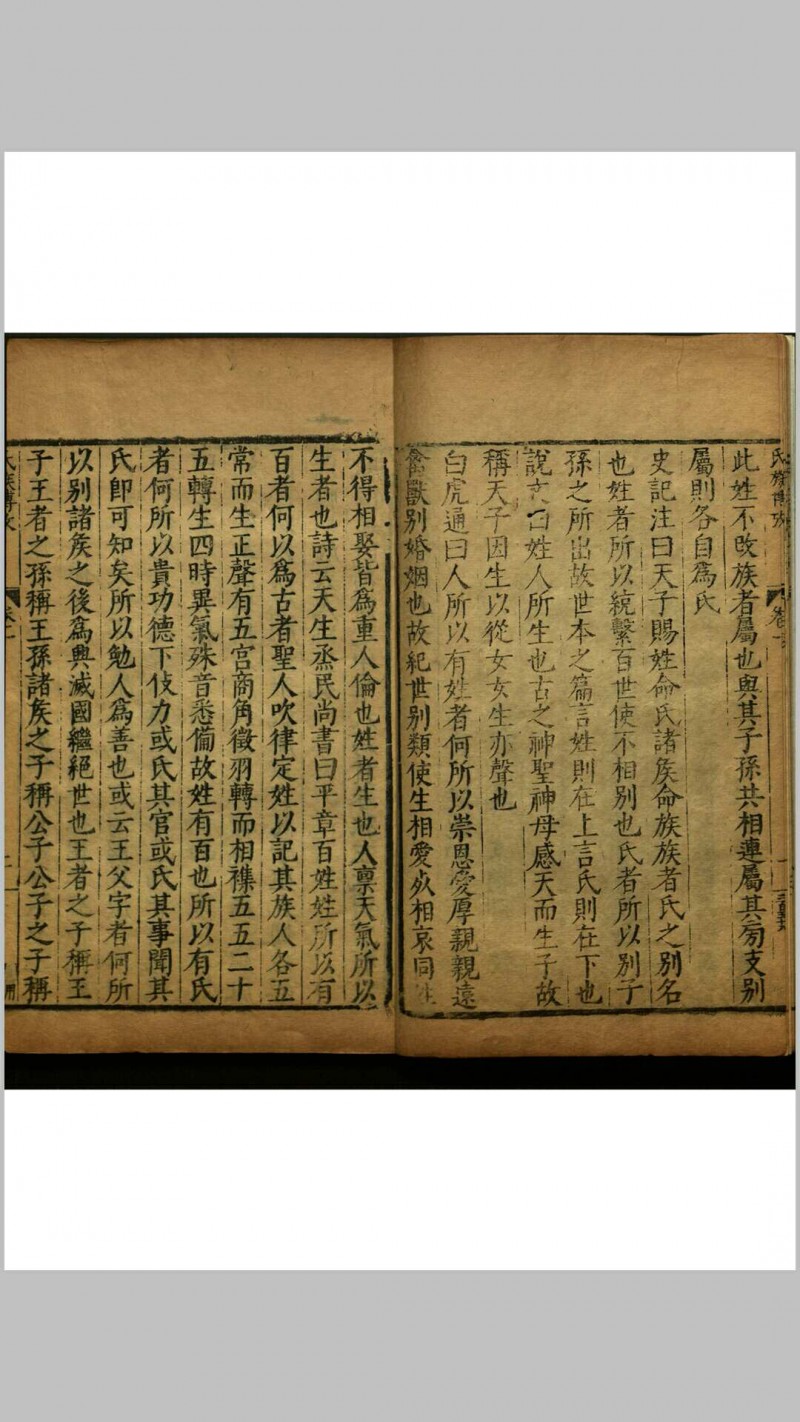 氏族博攷
卷一
此姓不改族者屬也與其子孫共相連屬其旁支別
屬則各自為氏
史記注曰天子賜姓命氏諸矦命族族者氏之別名
也姓者所以統繫百世使不相別也氏者所以別子
孫之所出故世本之篇言姓則在上言氏則在下也
說文曰姓人所生也古之神聖神母感天而生子故
稱天子因生以從女女生亦聲也
白虎通曰人所以有姓者何所以崇恩愛厚親親遠
禽獸別婚姻也故紀世別類使生相愛死相哀同姓
不得相娶皆為重人倫也姓者生也人稟天氣所以
生者也詩云天生烝民尚書曰平章百姓姓所以有
百者何以為古者聖人吹律定姓以記其族人各五
常而生正聲有五宮商角徵羽轉而相襍五五二十
五轉生四時異氣殊音悉備故姓有百也所以有氏
者何所以貴功德下伎力或氏其官或氏其事聞其
氏即可知矣所以勉人為善也或云王父字者何所
以別諸矦之後為興滅國繼絕世也王者之子稱王
子王者之孫稱王孫諸矦之子稱公子公子之子稱